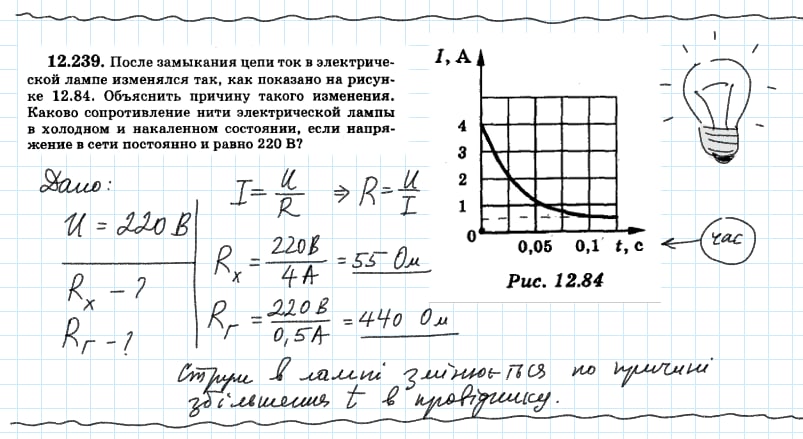 12.239. После замыкания цепи ток в электриче-
ской лампе изменялся так, как показано на рисун-
ке 12.84. Объяснить причину такого изменения.
Каково сопротивление нити электрической лампы
в холодном и накаленном состоянии, если напря-
жение в сети постоянно и равно 220 В?
I, А
4
3
2
1
0
0,05 0,1 t, с
Рис. 12.84
час
Дано:
U = 220 В
Rх - ?
Rг - ?
I = U/R ⇒ R = U/I
Rх = 220В/4А = 55 Ом
Rг = 220 В/0,5А = 440 Ом
Струм в лампі змінюється по причині
збільшення t в провіднику.